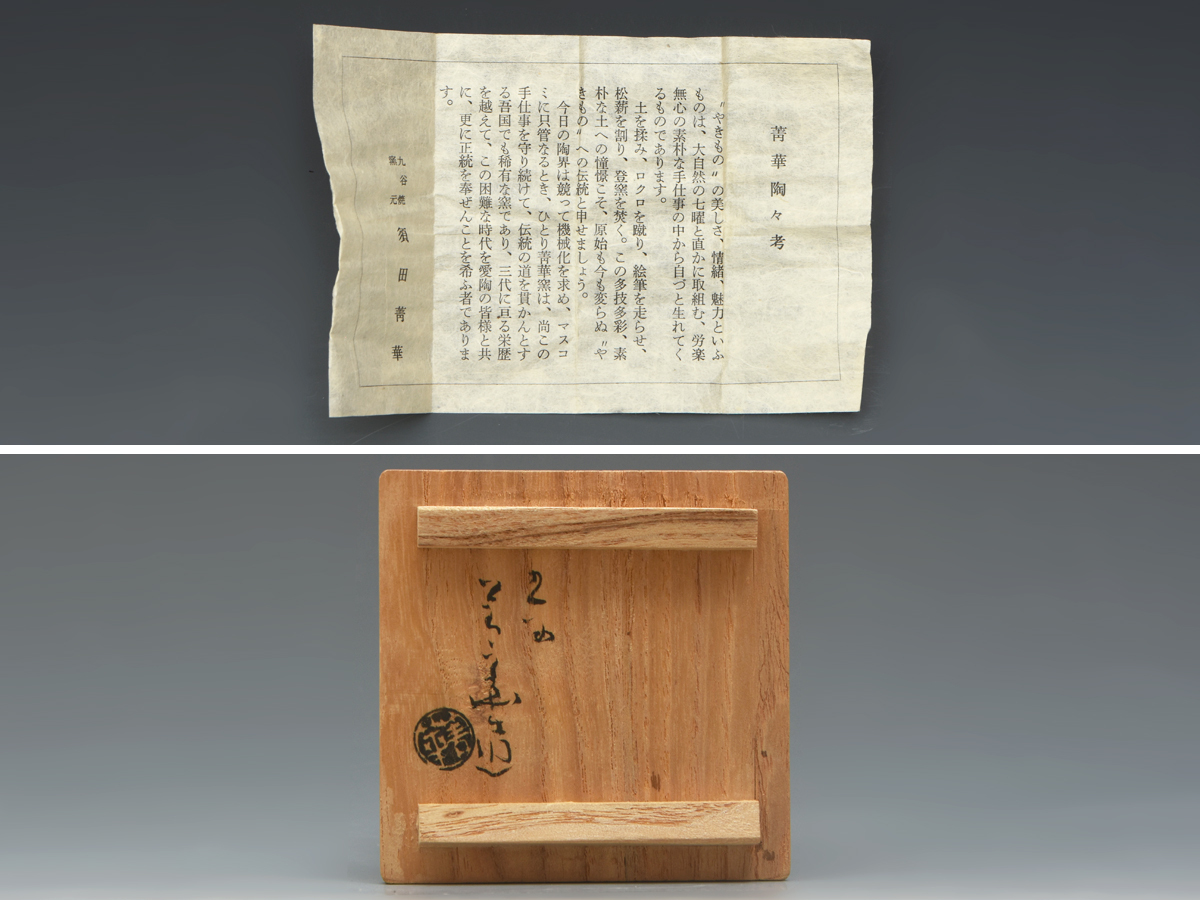 菁華陶々考
〝やきもの〟の美しさ、情緒、魅力といふ
ものは、大自然の七曜と直かに取組む、労楽
無心の素朴な手仕事の中から自づと生れてく
るものであります。
土を揉み、ロクロを蹴り、絵筆を走らせ、
松薪を割り、登窯を焚く。この多技多彩、素
朴な土への憧憬こそ、原始も今も変らぬ〝や
きもの〟への伝統と申せましょう。
今日の陶界は競って機械化を求め、マスコ
ミに只管なるとき、ひとり菁華窯は、尚この
手仕事を守り続けて、伝統の道を貫かんとす
る吾国でも稀有な窯であり、三代に亘る栄歴
を越えて、この困難な時代を愛陶の皆様と共
に、更に正統を奉ぜんことを希ふ者でありま
す。
九谷焼
窯元
須田菁華
九谷
菁華